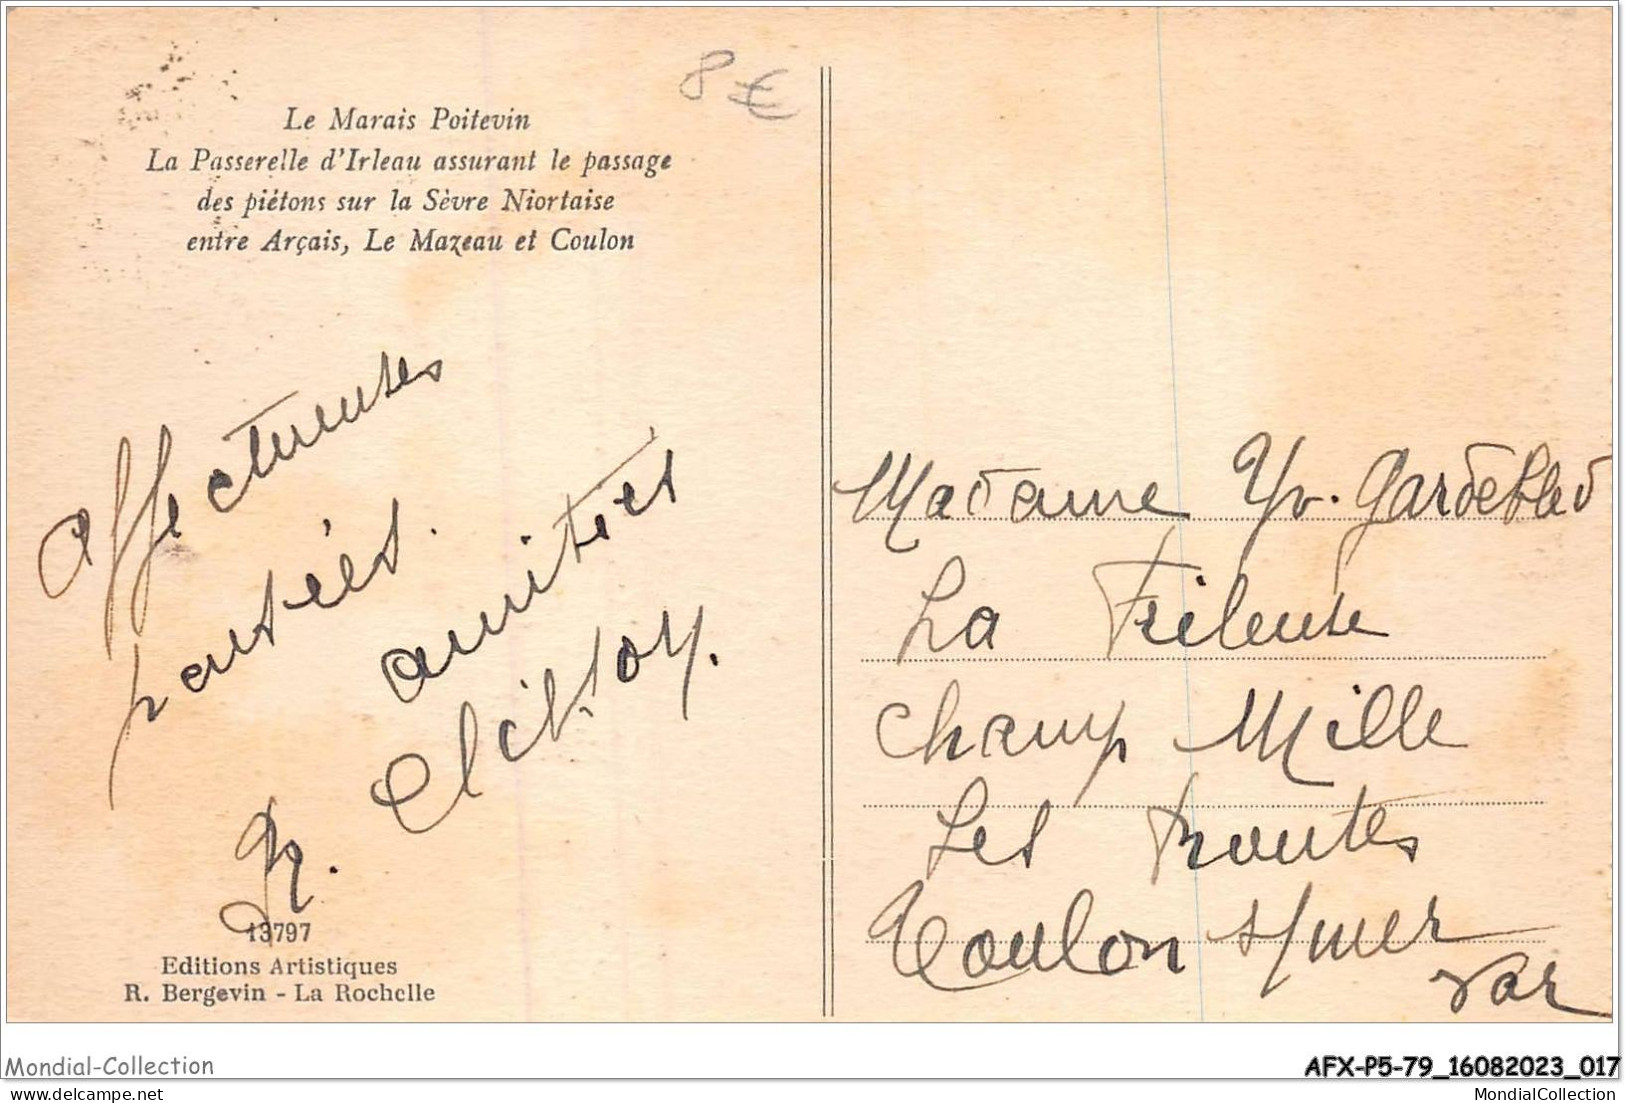 8 €
Le Marais Poitevin
La Passerelle d'Irleau assurant le passage
des piétons sur la Sèvre Niortaise
entre Arçais, Le Mazeau et Coulon
Affectueuses
pensées.
amitiés
R. Clisson.
13797
Editions Artistiques
R. Bergevin - La Rochelle
Madame Yv. Gardebled
La Frileuse
Champ Mille
Les Routes
Toulon s/mer
Var
Mondial-Collection
AFX-P5-79_16082023_017
delcampe.net
MondialCollection